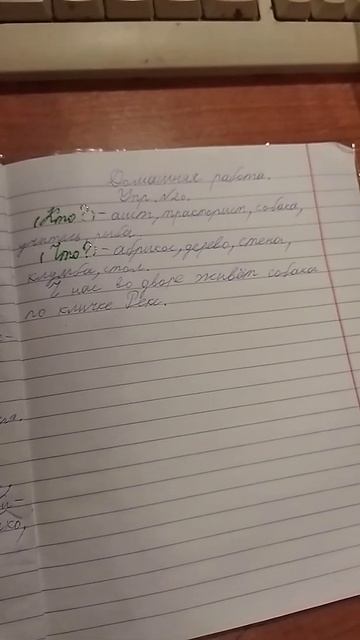 Домашняя работа.
Упр. №20.
(Кто?) - аист, тракторист, собака,
учитель,
(Что?) - абрикос, дерево, стена,
клумба, стол.
У нас во дворе живёт собака
по кличке Рекс.